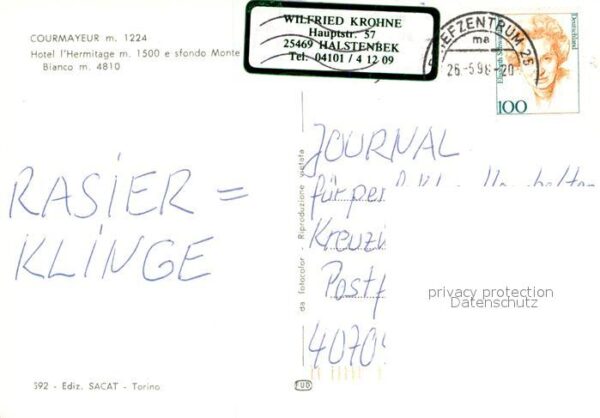 COURMAYEUR m. 1224
Hotel l'Hermitage m. 1500 e sfondo Monte
Bianco m. 4810
WILFRIED KROHNE
Hauptstr. 57
25469 HALSTENBEK
Tel. 04101 / 4 12 09
BRIEFZENTRUM 25
ma
26-5.96-20
Deutschland
100
RASIER =
KLINGE
JOURNAL
für
Kreuz
Postf
4070
da fotocolor - Riproduzione vietata
privacy protection
Datenschutz
392 - Ediz. SACAT - Torino